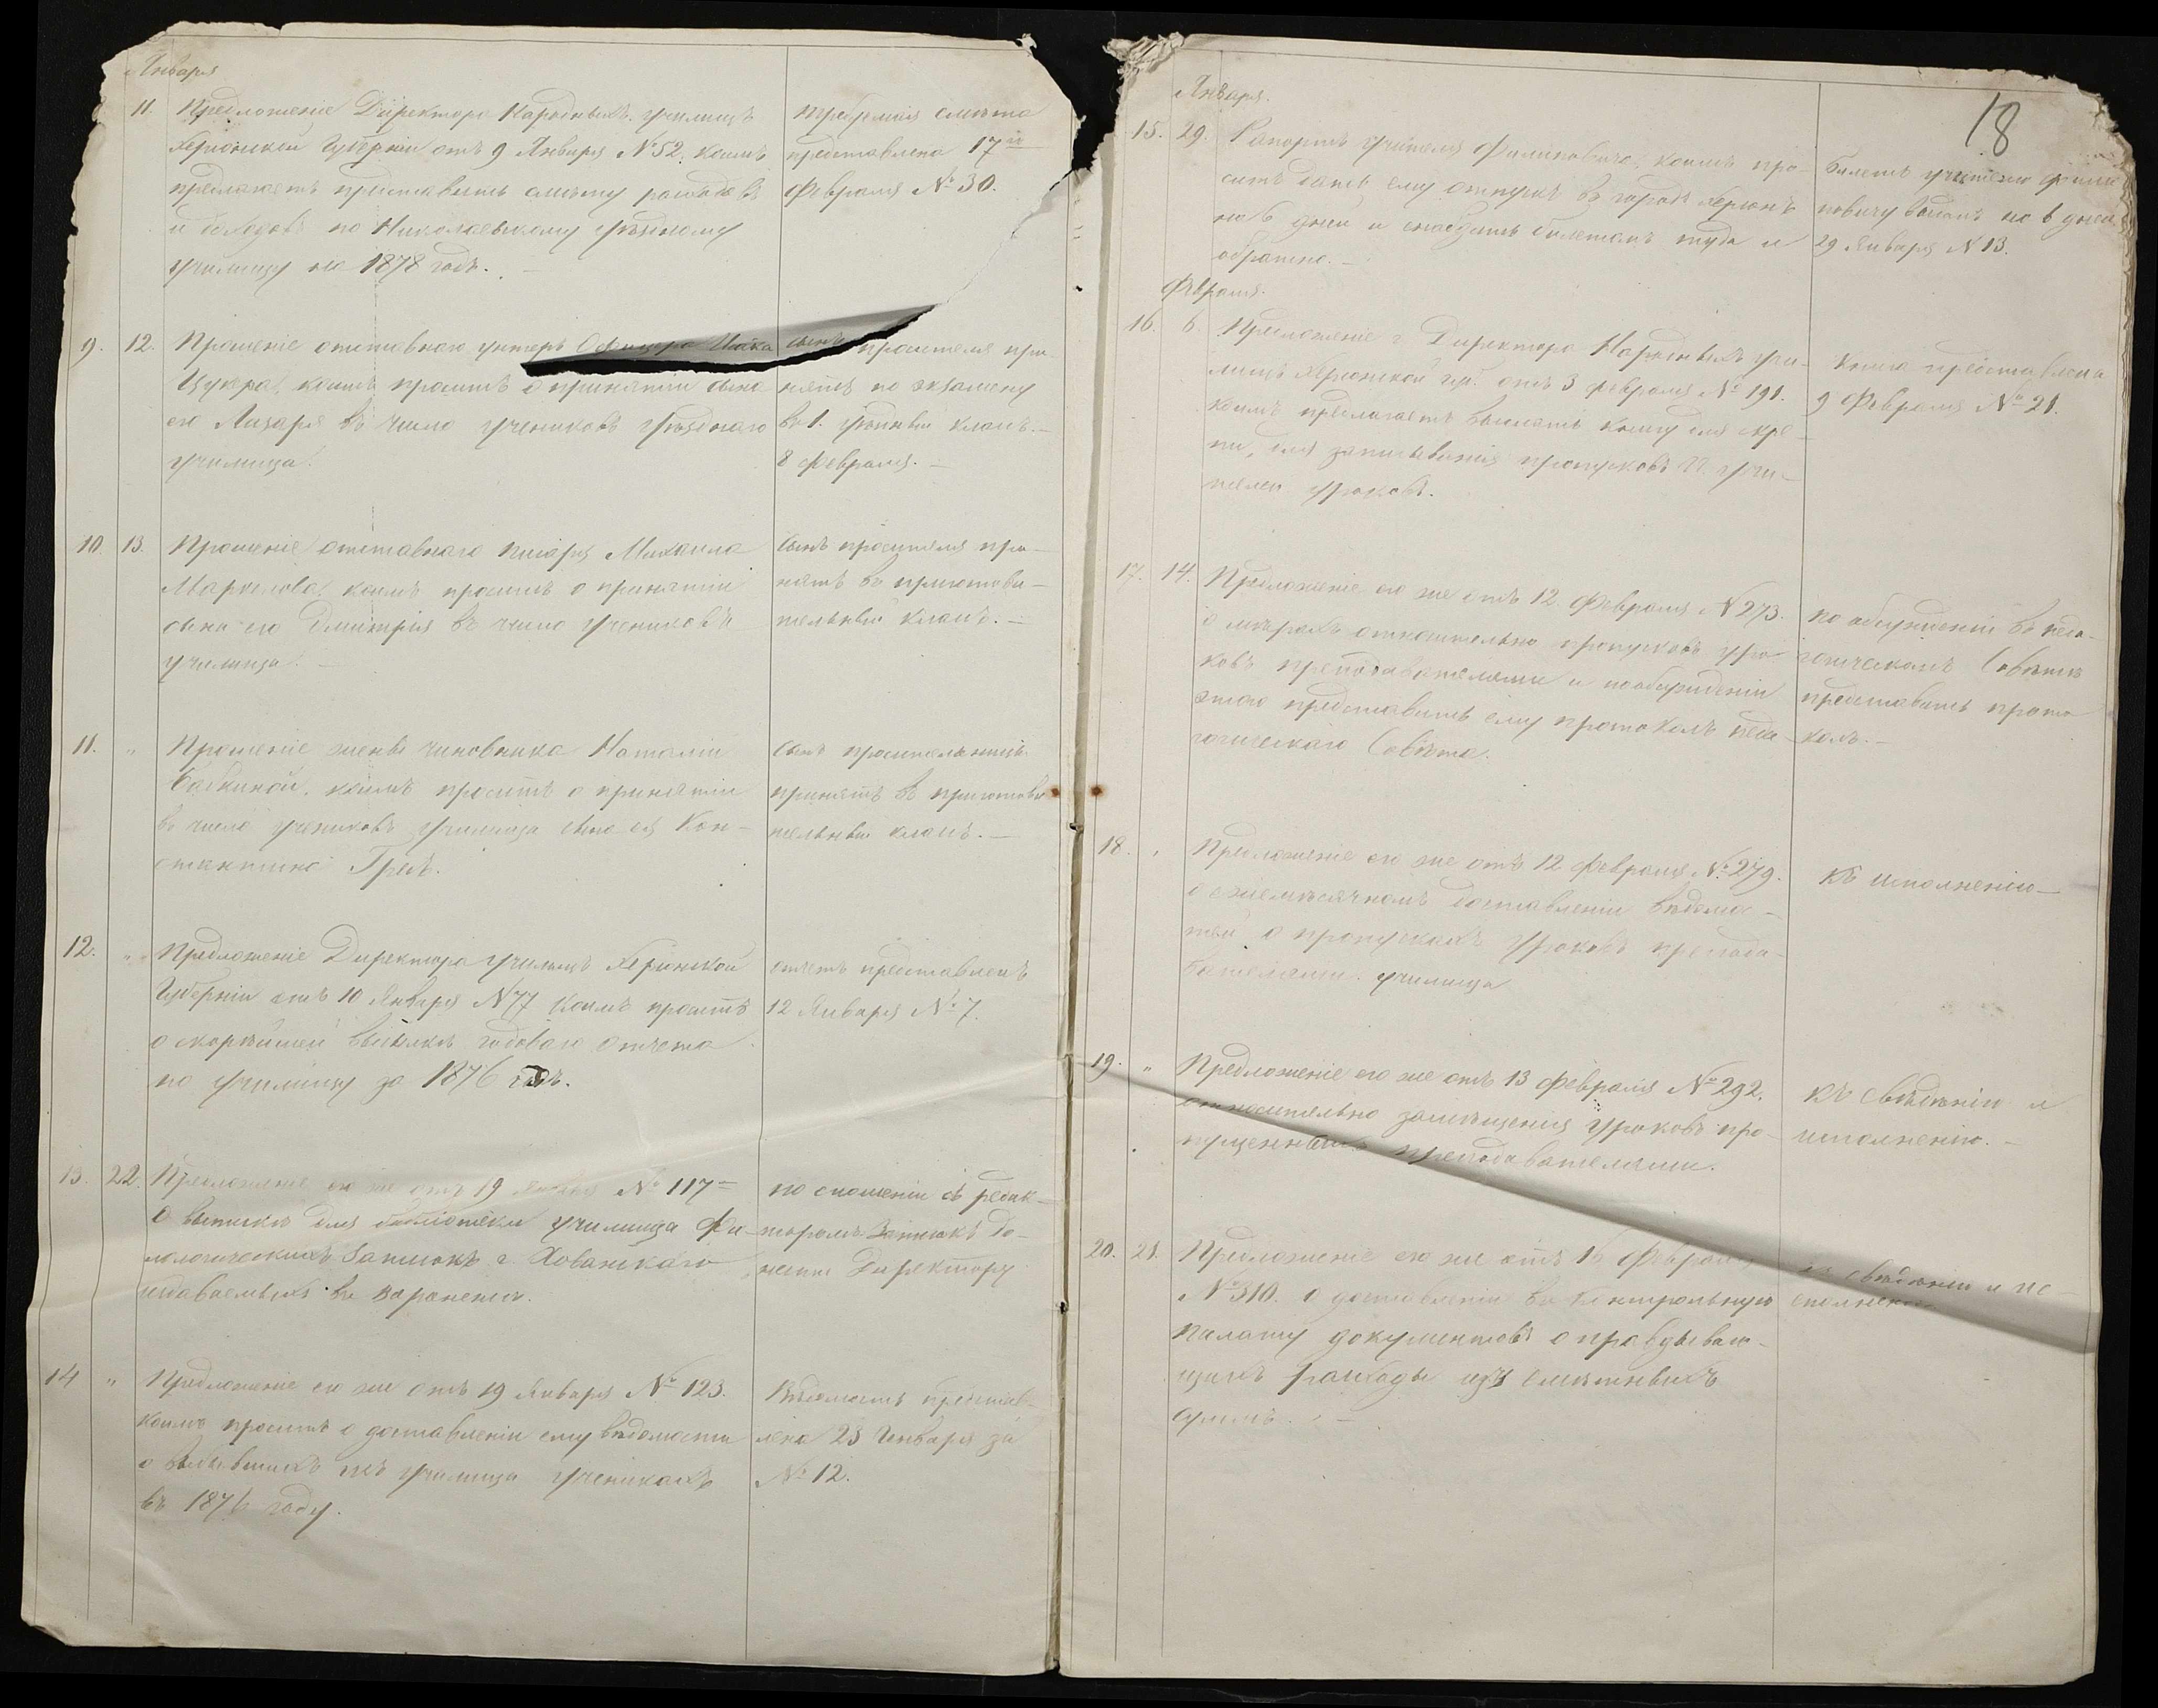 Января
11. Предложеніе Директора Народныхъ училищъ
Херсонской Губерніи отъ 9 Января №52, коимъ
предлагаетъ представить смѣту расходовъ
и доходовъ по Николаевскому уѣздному
училищу на 1878 годъ. –
требуемая смѣта
представлена 17го
Февраля № 30.
9. 12. Прошеніе отставнаго унтеръ Офицера
Цукера, коимъ проситъ о принятіи сына
его Лазаря въ число учениковъ уѣзднаго
училища.
сынъ просителя при-
нятъ по экзамену
въ 1. уѣздный классъ. –
8 Февраля. –
10. 13. Прошеніе отставнаго писаря Михаила
коимъ проситъ о принятіи
сына его Дмитрія въ число учениковъ
училища. –
Сынъ просителя при-
нятъ въ приготови-
тельный классъ. –
11. " Прошеніе жены чиновника Наталіи
коимъ проситъ о принятіи
въ число учениковъ училища сына ея Кон-
стантина
Сынъ просительницы
принятъ въ приготови
тельный классъ. –
12. " Предложеніе Директора училищъ Херсонской
Губерніи отъ 10 Января №77 коимъ проситъ
о скорѣйшей высылкѣ годоваго отчета
по училищу за 1876 годъ.
отчетъ представленъ
12 Января № 7.
13. 22. Предложеніе его же отъ 19 Января № 117
О выпискѣ для библіотеки училища Фи-
лологическихъ Записокъ г. Хованскаго
издаваемыхъ въ Воронежѣ.
по сношеніи съ редак-
торомъ Записокъ до-
нести Директору
14 " Предложеніе его же отъ 19 Января № 123.
коимъ проситъ о доставленіи ему вѣдомости
о выбывшихъ изъ училища ученикахъ
въ 1876 году.
Вѣдомость представ-
лена 23 Января за
№ 12.
18
Января.
15. 29. Рапортъ учителя Филиповича, коимъ про-
ситъ дать ему отпускъ въ городъ Херсонъ
на 6 дней и снабдить билетомъ туда и
обратно. –
Билетъ учителю Фили
повичу выданъ на 6 дней
29 Января № 13.
Февраля.
16. 6. Предложеніе г. Директора Народныхъ учи-
лищъ Херсонской губ. отъ 3 Февраля № 191.
коимъ предлагаетъ выслать книгу для
для записыванія пропусковъ гг. учи-
телей уроковъ.
Книга представлена
9 Февраля № 21.
17. 14. Предложеніе его же отъ 12 Февраля №273.
о мѣрахъ относительно пропусковъ уро-
ковъ преподавателями и по обсужденіи
этого представить ему протоколъ педа-
гогическаго Совѣта.
по обсужденіи въ педа-
гогическомъ Совѣтѣ
представить прото
колъ. –
18. " Предложеніе его же отъ 12 Февраля № 279.
о ежемѣсячномъ доставленіи вѣдомо-
стей о пропускахъ уроковъ препода-
вателями училища
Къ исполненію –
19. " Предложеніе его же отъ 13 Февраля № 292.
относительно замѣщенія уроковъ про-
пущенныхъ преподавателями.
Къ свѣдѣнію и
исполненію. –
20. 21. Предложеніе его же отъ 16 Февраля
№310. о доставленіи въ Контрольную
палату документовъ оправдываю-
щихъ расходы изъ смѣтныхъ
суммъ. –
къ свѣдѣнію и ис-
полненію